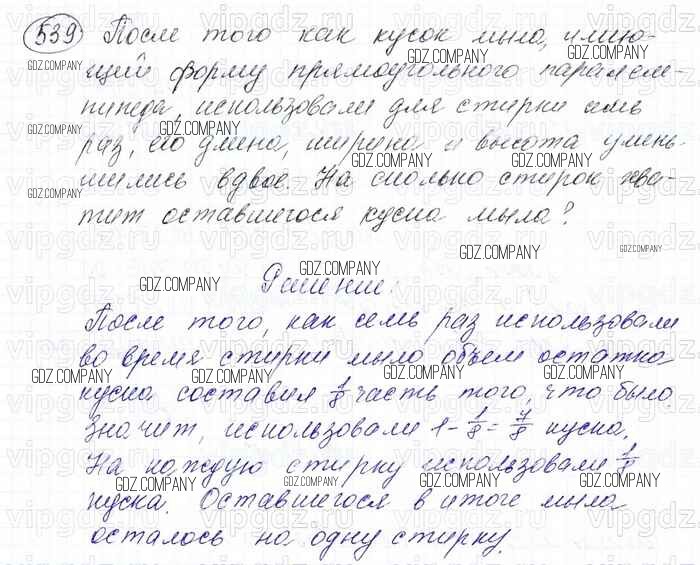 539 После того как кусок мыла, имею-
щий форму прямоугольного параллеле-
пипеда, использовали для стирки семь
раз, его длина, ширина и высота умень-
шились вдвое. На сколько стирок хва-
тит оставшегося куска мыла?
Решение.
После того, как семь раз использовали
во время стирки мыло объем остатка
куска составил 1/8 часть того, что было.
Значит, использовали 1-1/8=7/8 куска.
На каждую стирку использовали 1/8
куска. Оставшегося в итоге мыла
осталось на одну стирку.